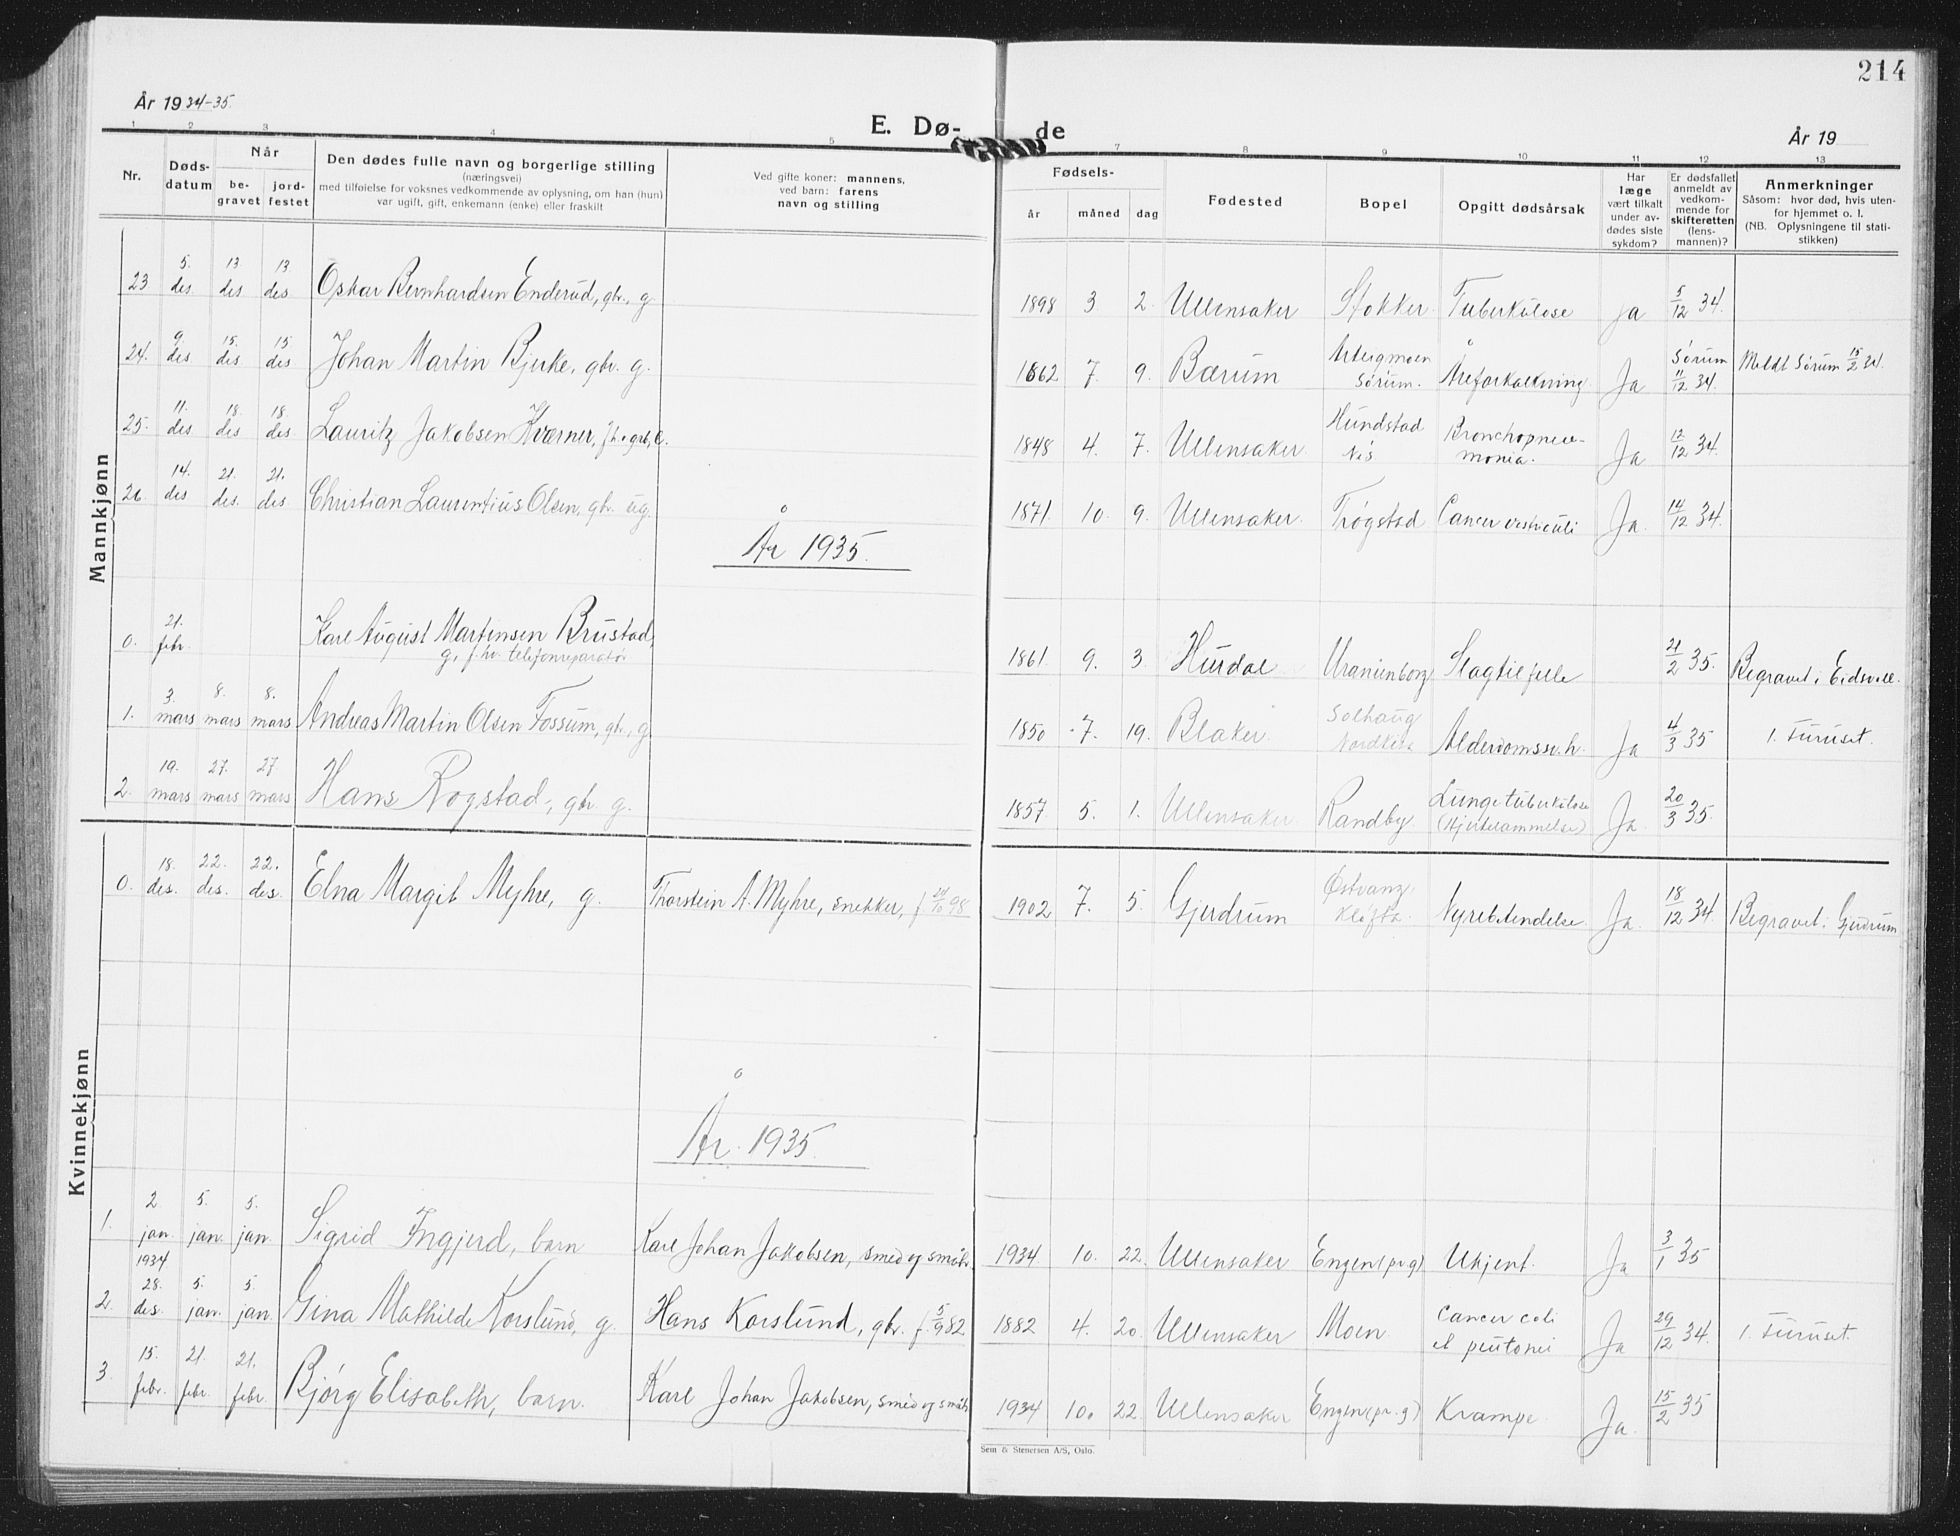 214
År 1934-35
E. Dø-
de
År 19
1 2 3 4 5 7 8 9 10 11 12 13
Nr.
Døds-
datum
Når
be-
gravet
jord-
festet
Den dødes fulle navn og borgerlige stilling
(næringsvei)
med tilføielse for voksnes vedkommende av oplysning, om han (hun)
var ugift, gift, enkemann (enke) eller fraskilt
Ved gifte koner: mannens,
ved barn: farens
navn og stilling
Fødsels-
år måned dag
Fødested
Bopel
Opgitt dødsårsak
Har
læge
vært tilkalt
under av-
dødes siste
sykdom?
Er dødsfallet
anmeldt av
vedkom-
mende for
skifteretten
(lens-
mannen)?
Anmerkninger
Såsom: hvor død, hvis uten-
for hjemmet o. l.
(NB. Oplysningene til stati-
stikken)
Mannkjønn
23 5. des. 13. des 13. des Oskar Bernhardsen Enderud, gbr., g. 1898 3 2. Ullensaker Stokker Tuberkulose ja 5/12 34.
24. 9. des 15. des 15 des Johan Martin Bjerke, gbr. g. 1862 7. 9. Bærum
Sørum. Åreforkalkning Ja Sørum 11/12 34. Meldt Sørum
25. 11. des 18. des 18. des. Lauritz Jakobsen Kværner, 1848 4. 7. Ullensaker. Hundstad
Nes Bronchopneu-
monia. Ja 12/12 34.
26. 14. des 21. des. 21. des. Christian Laurentius Olsen, gbr. ug. 1871. 10. 9. Ullensaker. Trøgstad Cancer Ja. 14/12 34.
År 1935.
0. 21. febr. Karl August Martinsen Brustad,
g., f.hv. telefonreparatør 1861. 9. 3. Hurdal Uranienborg Slagtilfelle 21/2 35. Begravet i Eidsvoll.
1. 3. mars 8. mars 8. mars Andreas Martin Olsen Fossum, gbr., g. 1850 7. 19. Blaker. Solhaug
Alderdomssv.h. Ja 4/3 35 1. Furuset.
2. 19. mars 27. mars 27 mars Hans Rogstad, gbr. g. 1857. 5. 1. Ullensaker Randby. Lungetuberkulose
(Hjertelammelse) Ja. 20/3 35.
Kvinnekjønn
0. 18. des. 22. des. 22. des. Elna Margit Myhre, g. Thorstein A. Myhre, snekker, f 24/10 98 1902 7. 5. Gjerdrum Østvang
Kløfta. Nyrebetendelse. Ja. 18/12 34. Begravet i Gjerdrum
År 1935.
1. 2 jan. 5. jan. 5. jan. Sigrid Ingjerd, barn Karl Johan Jakobsen, smed og småbr. 1934. 10. 22. Ullensaker Engen (pr g) Ukjent. Ja 3/1 35
2. 1934 28. des. 5. jan. 5. jan Gina Mathilde Korslund, g. Hans Korslund, gbr. f. 5/9 82 1882 4. 20. Ullensaker Moen. Cancer coli
et peritonei Ja 29/12 34. 1. Furuset.
3. 15. febr. 21. febr. 21. febr. Bjørg Elisabeth, barn. Karl Johan Jakobsen, smed og småbr 1934 10. 22. Ullensaker Engen (pr. g) Krampe. Ja. 15/2 35
Sem & Stenersen A/S, Oslo.